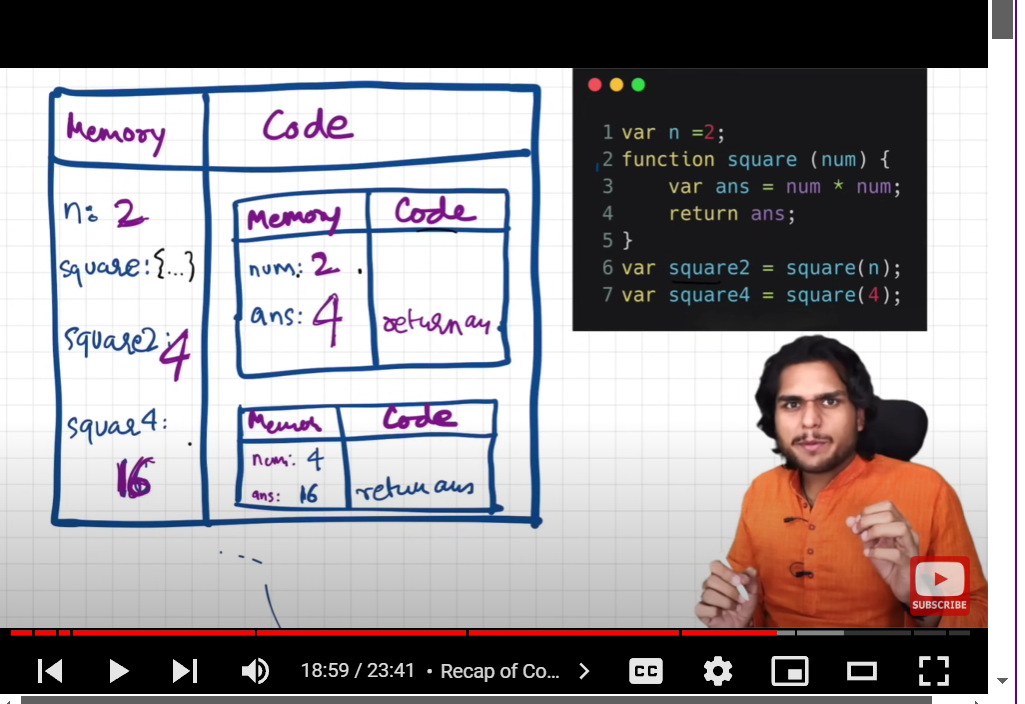 Memory Code
n: 2
square: {...}
square2: 4
squar4:
16
Memory Code
num: 2
ans: 4
return an
Code
num: 4
ans: 16
return ans
1 var n =2;
2 function square (num) {
3 var ans = num * num;
4 return ans;
5 }
6 var square2 = square(n);
7 var square4 = square(4);
SUBSCRIBE
18:59 / 23:41 • Recap of Co...
CC